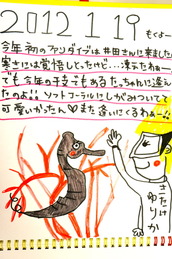 2012 1 19 もくよー
今年初のファンダイブは井田さんに来ました
寒さには覚悟しとったけど…凍てたねぁー
でも今年の干支でもあるたっちゃんに逢え
たのよ!!ソフトコーラルにしがみついてて
可愛いかったん♥また逢いにくるわぁー!!
さたけ
ゆりか